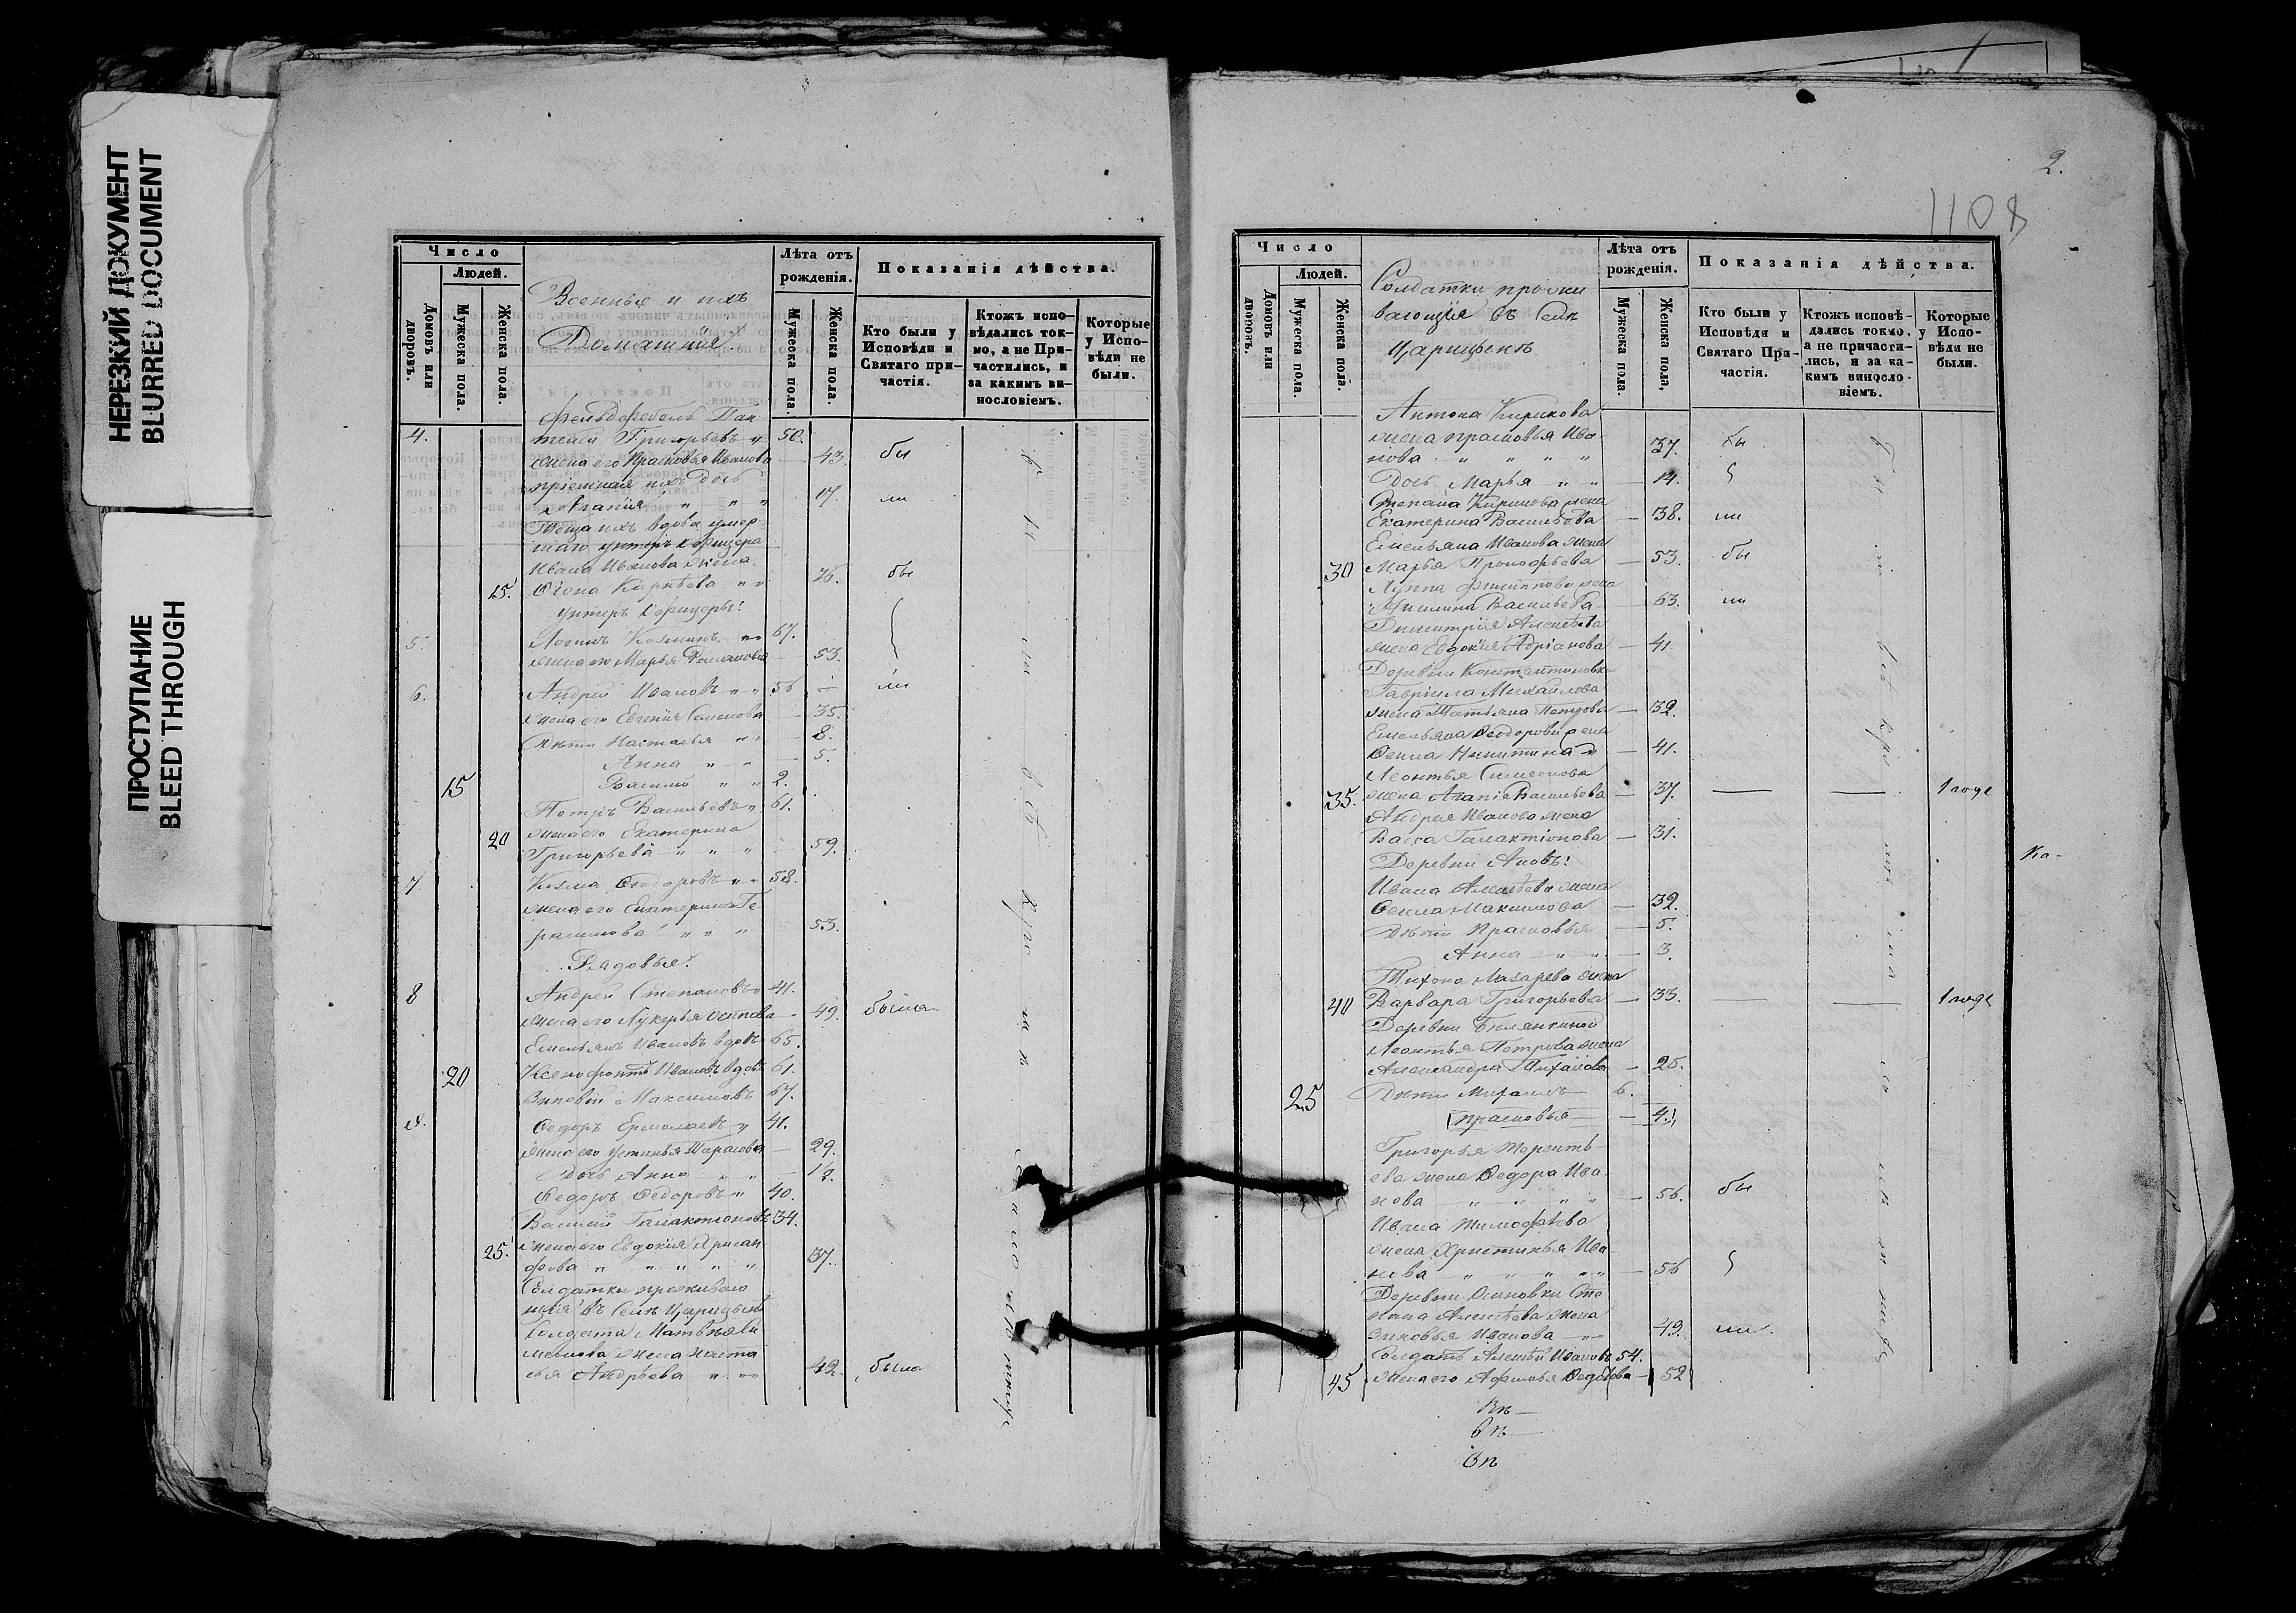 НЕРЕЗКИЙ ДОКУМЕНТ
BLURRED DOCUMENT
ПРОСТУПАНИЕ
BLEED THROUGH
Число
Людей.
Домовъ или дворовъ.
Мужеска пола.
Женска пола.
Военныя и ихъ
Домашнія.
Лѣта отъ рожденія.
Мужеска пола.
Женска пола.
Показанія дѣйства.
Кто были у Исповѣди и Святаго при-частія.
Ктожъ испо-вѣдались ток-мо, а не При-частились, и за какимъ ви-нословіемъ.
Которые у Испо-вѣди не были.
Фельдфебель Пан-
4. телей Григорьевъ " 50.
жена его Прасковья Иванова — 43. бы
пріемная ихъ дочь
" " " 17. ли
Теща ихъ вдова умер
шаго унтеръ офицера
Ивана Иванова жена
15. " " 76. бы
Унтеръ Офицеры:
5. Логинъ Козминъ " " 67.
жена его Марья Романова — 53.
6. Андрей Ивановъ " " 56 — ли
жена его Евгенія Семенова — 35.
Дѣти Настасья " " — 8.
Анна " " — 5.
15 Василій " " 2.
Петръ Васильевъ " 61.
20 жена его Екатерина
Григорьева " " " — 59.
7 Козма Ѳеодоровъ " " 58.
жена его Екатерина Ге
расимова " " " — 53.
Рядовые.
8 Андрей Степановъ " 41.
жена его Лукерья Осипова — 49. были
Емельянъ Ивановъ вдовъ 65.
20 Ксенофонтъ Ивановъ вдовъ 61.
Зиновій Максимовъ 67.
Ѳедоръ Ермолаевъ " 41.
жена его Устинья Тарасова — 29.
Дочь Анна " " — ½.
Ѳедоръ Ѳедоровъ " 40.
Василій Галактіоновъ 34.
25. жена его Евдокія Хрисан
фова " " " " " 37.
Солдатки прожива
ющія въ Селѣ Царицынѣ
Солдата Матвѣя Си
меонова жена Наста
сья Андрѣева " " 42. была
2.
1108
Число
Людей.
Домовъ или дворовъ.
Мужеска пола.
Женска пола.
Солдатки прожи
вающія въ Селѣ
Царицынѣ
Лѣта отъ рожденія.
Мужеска пола.
Женска пола,
Показанія дѣйства.
Кто были у Исповѣди и Святаго При-частія.
Ктожъ исповѣ-дались токмо, а не причасти-лись, и за ка-кимъ винословіемъ.
Которые у Испо-вѣди не были.
Антона Кирикова
жена Прасковья Ива
нова " " " " 37. бы
Дочь Марья " " — 14.
Степана Кирикова жена
Екатерина Васильева — 38. ли
Емельяна Иванова жена
30 Марья Прокофьева — 53. бы
Луппа Филиппова жена
Васильева — 63. ли
Димитрія Алексѣева
жена Евдокія Адріанова — 41.
Деревни Константиновки
Гавріила Михайлова
жена Татьяна Петрова — 32.
Емельяна Ѳеодорова жена
Ѳекла Никитина " — 41.
Леонтья Симеонова
35. жена Агапія Васильева — 37. — — 1 годъ
Андрея Иванова жена
Васса Галактіонова — 31.
Ивана Алексѣева жена
Ѳекла Максимова — 32.
Дѣти Прасковья — 5.
Анна — " " — 3.
Тихона Лазарева жена
40 Варвара Григорьева — 33. — — 1 годъ
Леонтья Петрова жена
Александра Тихонова — 25.
25 Дѣти Михаилъ 6.
Прасковья — 4.
Григорья Терентѣ
ева жена Ѳедора Ива
нова " " " " — 56. бы
Ивана Тимофѣева
жена Христинья Ива
нова " " " " " — 56
Деревни Осиновки Сте
пана Алексѣева жена
Зиновья Иванова — " 49. ли.
Солдатъ Алексѣй Ивановъ 54.
45 жена его Афимья Ѳедотова — 52
Ка-